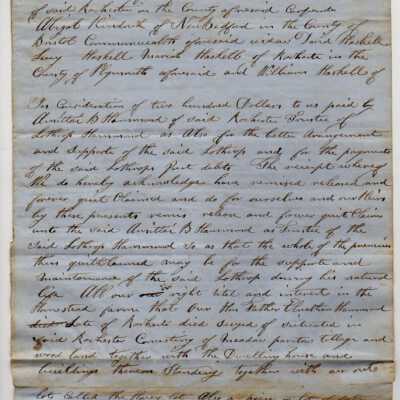 of said Rochester in the County aforesaid
Abigail of New Bedford in the County of
Bristol Commonwealth aforesaid widow David Haskell
Haskell Maria Haskell of Rochester in the
County of Plymouth aforesaid and William Haskell of
In Consideration of two hundred Dollars to us paid by
B Hammond of said Rochester Trustee of
Lothrop Hammond as Also for the better
and Supporte of the said Lothrop and for the payments
of the said Lothrops Just debts The receipt whereof
We do hereby acknowledge have remised released and
forever quit Claimed and do for ourselves and our Heirs
by these presents remis release and forever quit Claim
unto the said B Hammond as Trustee of the
Said Lothrop Hammond So as that the whole of the premises
thus quitclaimed may be for the supporte and
maintainance of the said Lothrop during his natural
life All our right titel and interest in the
Homestead that Our Father Hammond
late of Rochester died Seized of Situated in
said Rochester Consisting of Meadow tillage and
wood land together with the Dwelling house and
buildings thereon Standing together with
lots Called the lot Also a